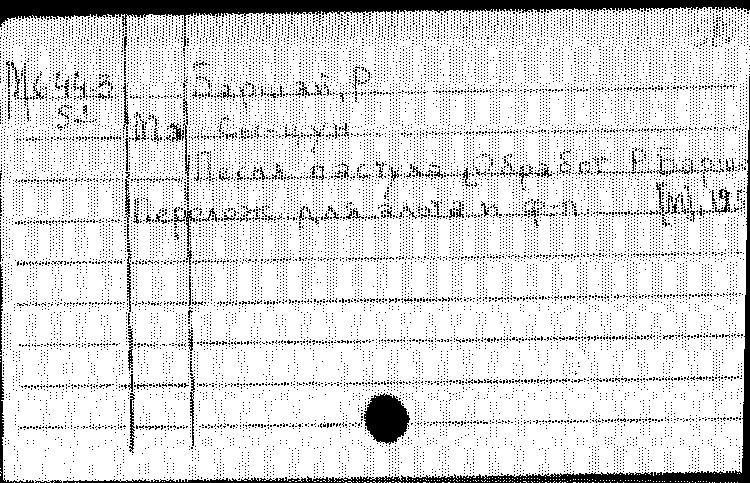 М6448 Баршай, Р
52
Ма
Песня пастуха Обработ Р Барша
Перелож для альта и ф-п [М], 195